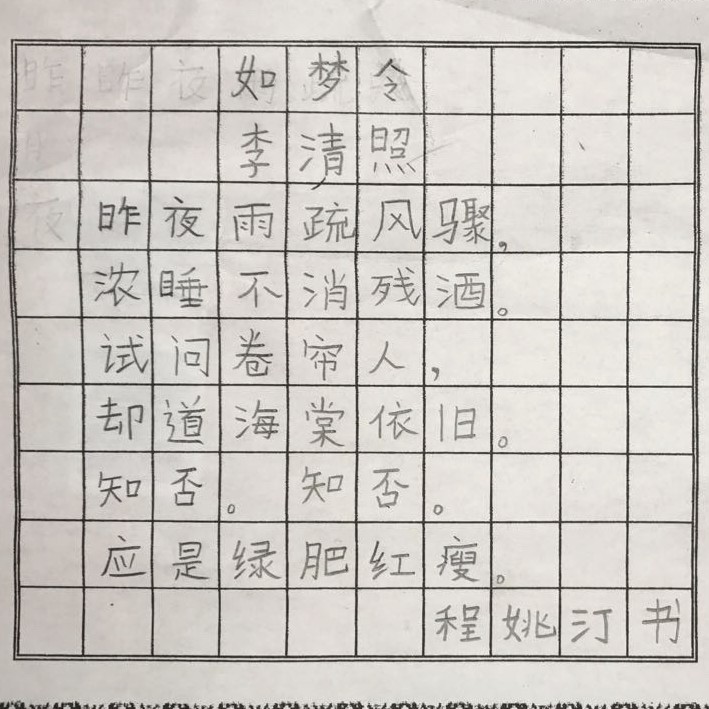 如梦令
李清照
昨夜雨疏风骤，
浓睡不消残酒。
试问卷帘人，
却道海棠依旧。
知否。知否。
应是绿肥红瘦。
程姚汀书